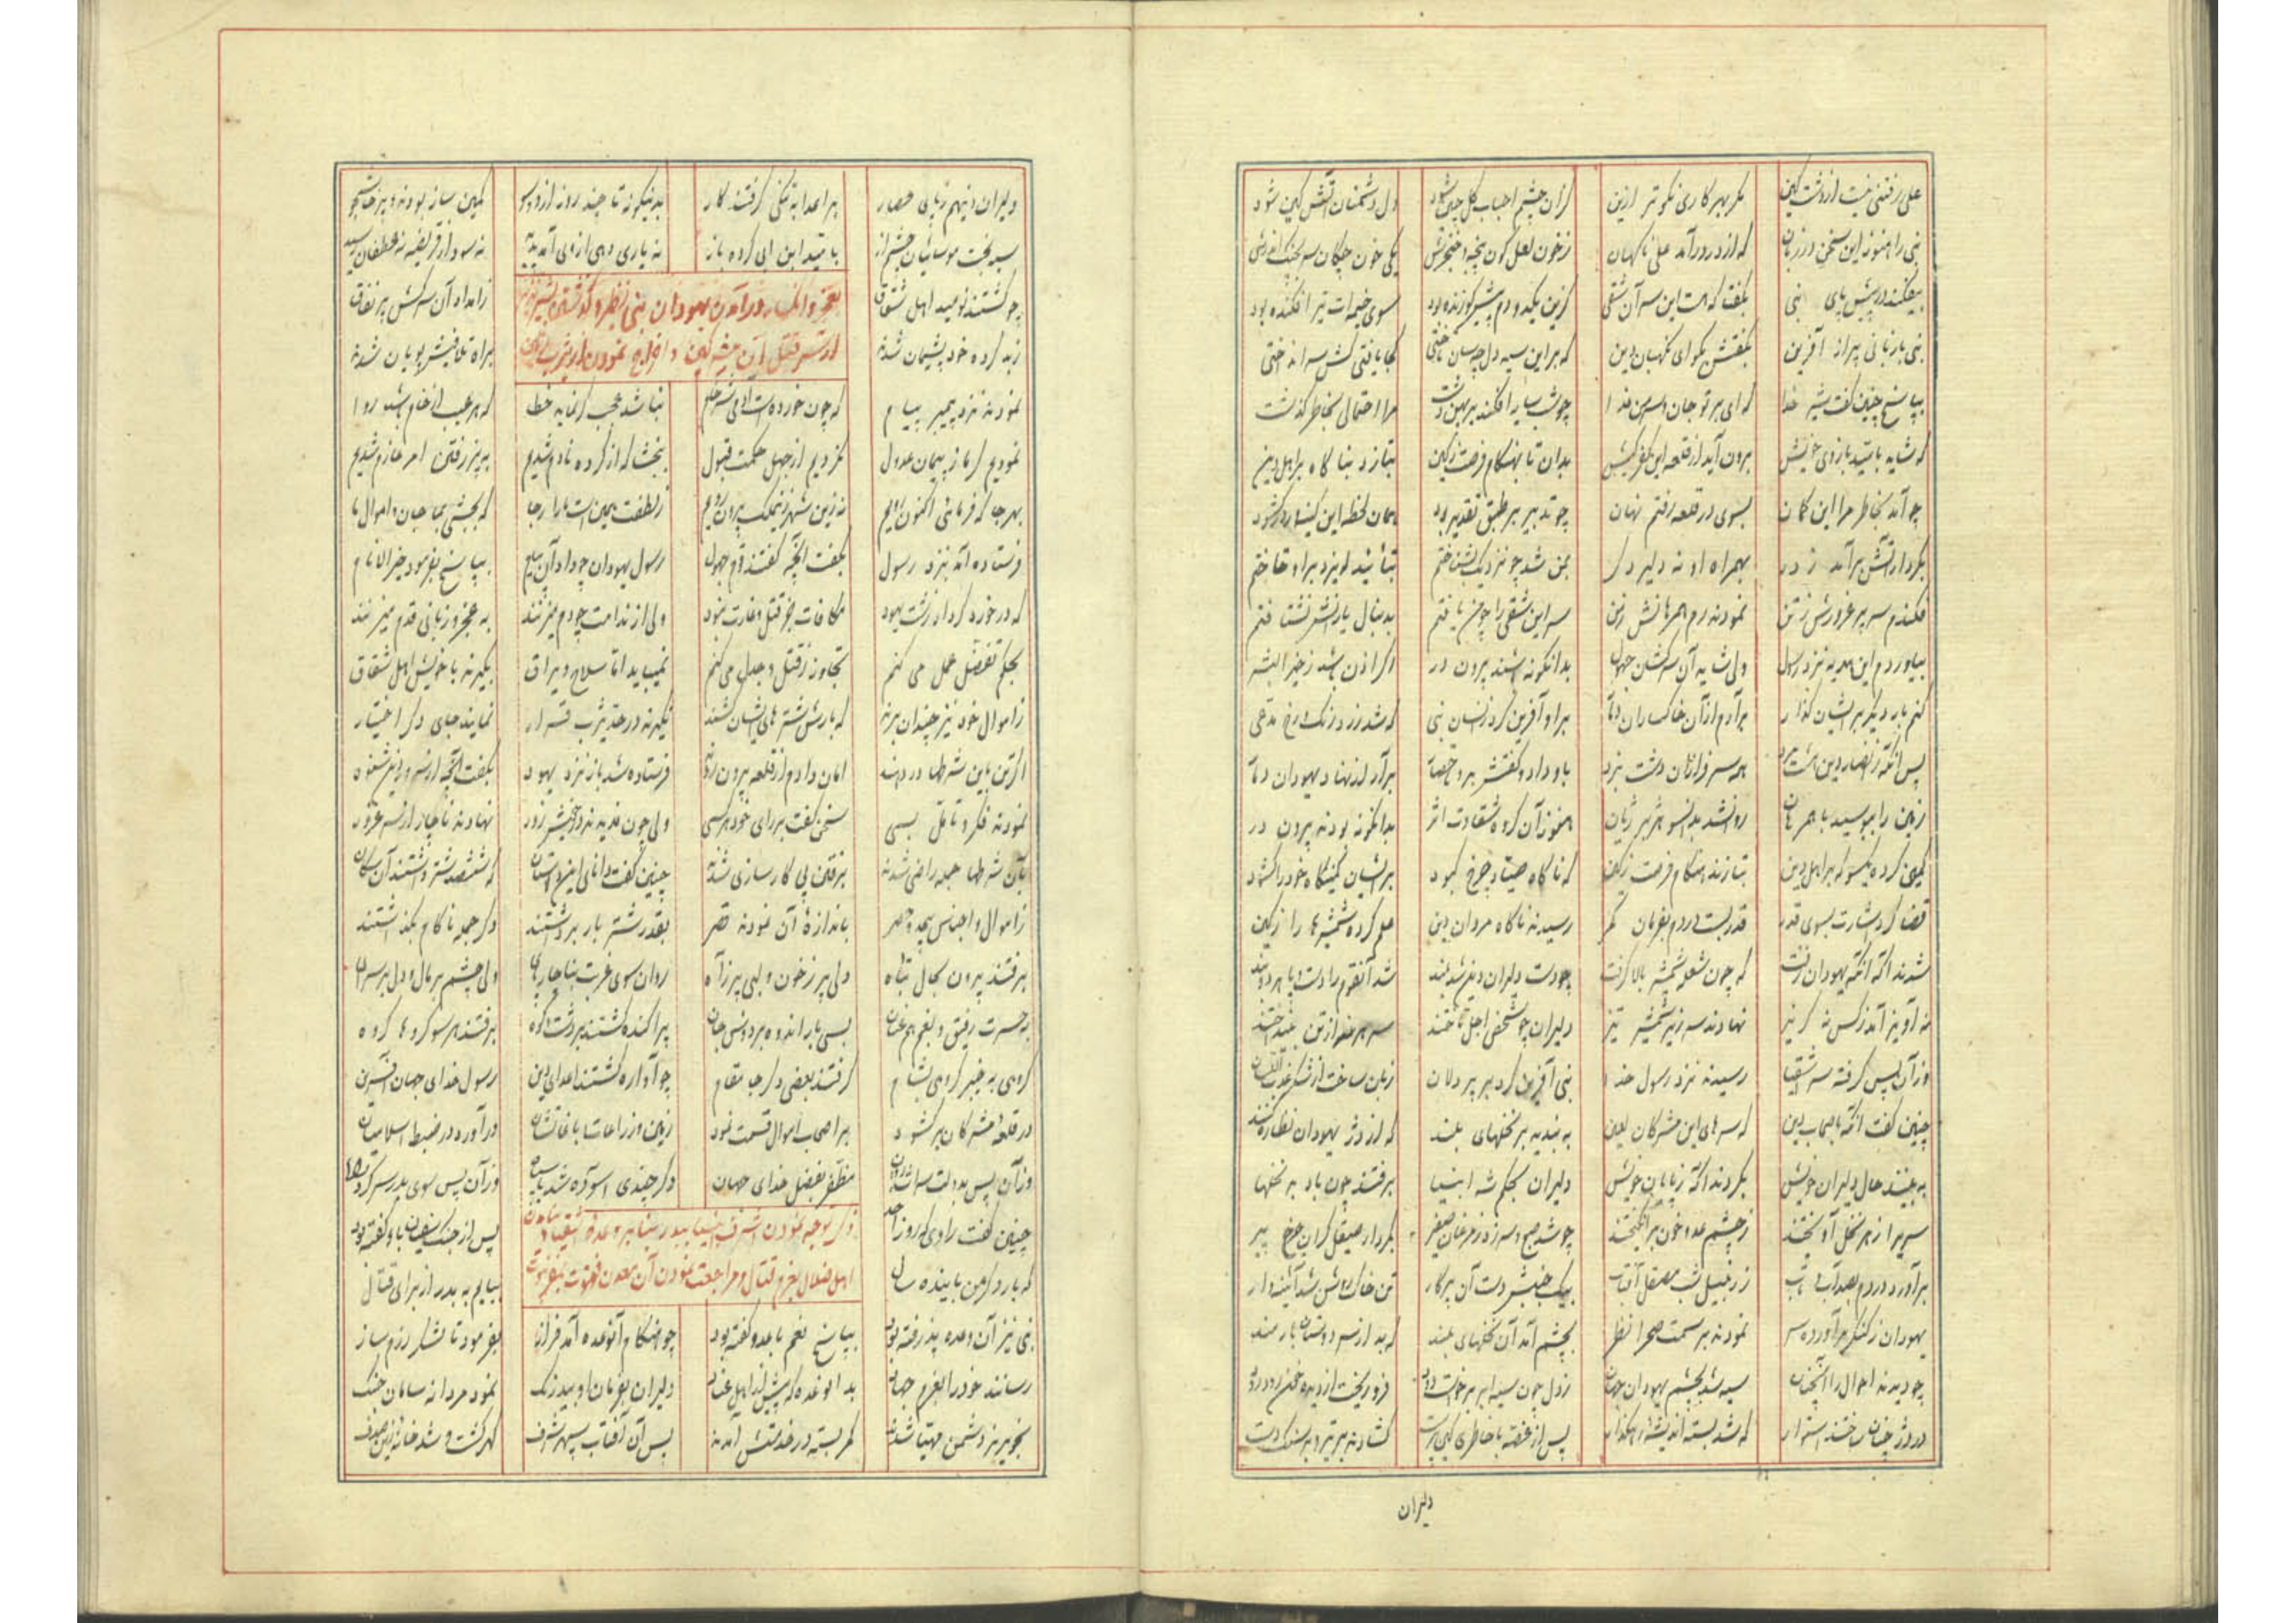 علی رفتنی نیست از دشت کین مگر بهر کاری نکوتر ازین کزان چشم احباب گل چین شود دل دشمنان آتش کین شود
نبی را هنوز این سخن در زبان که از در درآمد علی ناگهان ز خون لعل گون پنجه و خنجرش یکی خون چکان سر بچنگ اندرش
بیفکند در پیش پای نبی بگفتا که هست این سر آن شقی کزین یکدو دم پیشتر زنده بود سوی خیمه ات تیر افکنده بود
نبی با زبانی پر از آفرین بگفتش بگو ای نگهبان دین که بر این سیه دل چه سان تاختی کجا یافتی کش سر انداختی
بپاسخ چنین گفت شیر خدا که ای بر تو جان من فدا چو شب سایه افکند بر بهن دشت مرا احتمالی بخاطر گذشت
که شاید بامید بازوی خویش برون آید از قلعه این کفر کیش بدان تا بهنگام فرصت ز کین بتازد بناگاه بر اهل دین
چو آمد بخاطر مرا این گمان بسوی در قلعه رفتم نهان چو تدبیر بر طبق تقدیر بود همان لحظه این در گشود
بکردار آتش برآمد ز در بهمراه او نه دلیر دگر بمن شد چو نزدیک بشناختم بتأیید ایزد بر او تاختم
فکندم سر پر غرورش ز تن نمودند رم همرهانش ز من سر این شقی را چو من یافتم بدنبال یارانش نشتافتم
بیاوردم این هدیه نزد رسول ولی شاید آن سرکشان جهول بدانگونه باشند بیرون در اگر اذن باشد ز خیر البشر
کنم بار دیگر بر ایشان گذار برآرم از آن خاکساران دمار بر او آفرین کرد از آن نبی که شد زرد رنگ رخ مدعی
پس آنگه ز انصار دین هشت مرد همه سرفرازان دشت نبرد باو داد و گفتش برو برآر از نهاد یهودان دمار
زمین را ببوسید با همرهان روان شد بدانسو هژبر ژیان هنوز آن گروه شقاوت اثر بدانگونه بودند بیرون در
کمین کرده یکسو که بر اهل دین بتازند هنگام فرصت ز کین که ناگاه صیاد چرخ کبود بر ایشان کمینگاه خود را گشود
قضا کرد اشارت بسوی قدر قدر بست در دم بفرمان کمر رسیدند ناگاه مردان دین علم کرده شمشیرها را ز کین
شدند آگه آنگه یهودان که چون شعله شمشیر بالا گرفت چو دست دلیران دین شد بلند شد آنقوم را دست و پا
نه آویز آمد ز کس نه گریز نهادند سر زیر شمشیر تیز دلیران چو شخص اجل تاختند سر هر نفر از تن بینداختند
وز آن پس گرفته سر اشقیا رسیدند نزد رسول خدا نبی آفرین کرد بر پر دلان زبان ساخت از شکر
چنین گفت آنگه باصحاب دین که سرهای این مشرکان لعین ببندید بر نخلهای بلند که از دژ یهودان نظاره کنند
ببینند حال دلیران خویش بگردند آگه ز پایان خویش دلیران بحکم شه انبیا برفتند چون باد بر نخلها
سریرا ز هر نخل آویختند ز چشم عدو خون برانگیختند چو شد صبح و سر زد ز مرغان صفیر بکردار صیقل گران چرخ پیر
برآورد در دم بصد آب و تاب ز زنبیل شب مصقل آفتاب بیک جنبش دست آن پرکار تن خاک روشن شد آئینه وار
یهودان ز کنگر برآورده سر نمودند بر سمت صحرا نظر بچشم آمد آن نخلهای بلند که بد از سر دوستان بارمند
چو دیدند احوال را آنچنان سیه شد بچشم یهودان جهان ز دل چون سیه ابر برخاست دود فرو ریخت از دیده خون رود رود
در دژ چنان ساختند استوار که شد بسته اندیشه را هم گذار پس از غصه با خاطری گشادند بر تیر و بر سنگ دست
دلیران
دلیران دین هم بپای حصار بر اعدا بتنگی گرفتند کار بدینگونه تا چند روز از دو سو کمین ساز بودند و پرخاشجو
سیه بخت موسائیان چشم باز بامید ابن ابی کرده باز نه یاری دهی از وی آمد پدید نه سود از قریظه نه غطفان رسید
بعجز و انکسار درآمدن یهودان بنی نضیر و گذشتن
از سر قتل آن مشرکین و اخراج نمودن از یثرب زمین
چو گشتند نومید اهل شقاق ز امداد آن سرکش پر نفاق
ز بد کرده خود پشیمان شدند براه تلافیش پویان شدند
نمودند نزد پیمبر پیام که چون خورده است آدمی شیر خام نباشد عجب گر نماید خطا که هر عیب از خام باشد روا
نمودیم گر ما ز پیمان عدول نکردیم از جهل حکمت قبول ببخشا که از کرده نادم شدیم بپذرفتن امر عازم شدیم
بهر جا که فرمائی اکنون رویم ازین شهر زین ملک بیرون رویم ز لطفت همین است ما را رجا که بخشی بما جان و اموال ما
فرستاده آمد بنزد رسول بگفت آنچه گفتند قوم جهول رسول یهودان چو داد آن پیام بپاسخ بفرمود خیر الانام
که در خورد کردار زشت یهود مکافات جز قتل و غارت نبود ولی از ندامت چو دم میزنند به عجز و زبانی قدم میزنند
بحکم تفضل عمل می کنم تجاوز ز قتل و جدل می کنم نمیباید اما سلاح و یراق بگیرند با خویش اهل شقاق
ز اموال خود نیز چندان برند که بارش شترهای ایشان کشند نگیرند در حد یثرب قرار نمایند جای دگر اختیار
اگر تن باین شرطها در دهند امان دادم از قلعه بیرون روند فرستاده شد باز نزد یهود بگفت آنچه از سرور دین شنود
نمودند فکر و تأمل بسی سخن گفت بر رای خود هر کسی ولی چون ندیدند در خویش زور نهادند ناچار از سر غرور
بآن شرطها جمله راضی شدند برفتن پی کارسازی شدند چنین گفت دانای این داستان که ششصد شتر داشتند آن سگان
ز اموال و اجناس بیحد و حصر باندازهٔ آن نمودند قصر بقدر شتر بار برداشتند دگر جمله ناکام بگذاشتند
برفتند بیرون بحال تباه دلی پر ز خون و لبی پر ز آه روان سوی غربت بناچار ولی چشم بر مال و دل بر سران
به حسرت رفیق و بغم هم عنان بسی بار اندوه بر دوش جان پراکنده گشتند بر دشت و کوه برفتند هر سو گروها گروه
گروهی به خیبر گروهی بشام گرفتند بعضی دگر جا مقام چو آواره گشتند اعدای دین رسول خدای جهان آفرین
در قلعهٔ مشرکان برگشود بر اصحاب اموال قسمت نمود زمین و زراعات باغاتشان درآورد در ضبط اسلامیان
وز آن پس بدولت سر مظفر بفضل خدای جهان دگر چندی آسوده شد با سپاه وز آن پس سوی بدر سر کرد راه
ذکر توجه نمودن اشرف انبیا ببدر بنا بر وعدهٔ
اهل ضلال بعزم قتال و مراجعت نمودن آن معدن فتوت
چنین گفت راوی که روز احد پس از جنگ سفیان باو گفته بود
که بار دگر من بآینده سال بیایم به بدر از برای قتال
نبی نیز آن وعده پذرفته بود بپاسخ نعم با عدو گفته بود چو هنگام آنوعده آمد فراز بفرمود تا لشکر رزم ساز
رسانند خود را بعزم جهاد بدانوعده که پیش دلیران بفرمان او بیدرنگ نمود مردانه سامان جنگ
بخونریز دشمن مهیا شدند کمر بسته در خدمتش آمدند پس آن آفتاب سپهر شرف